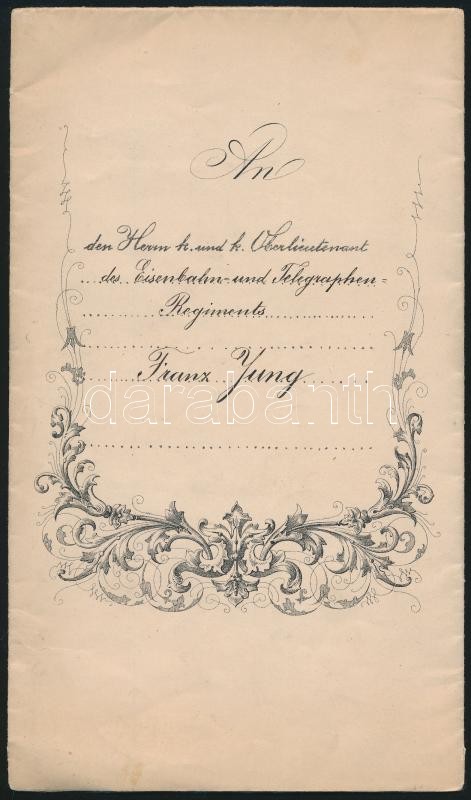 An
den Herrn k. und k. Oberlieutenant
des Eisenbahn- und Telegraphen=
Regiments
Franz Jung
darabanth